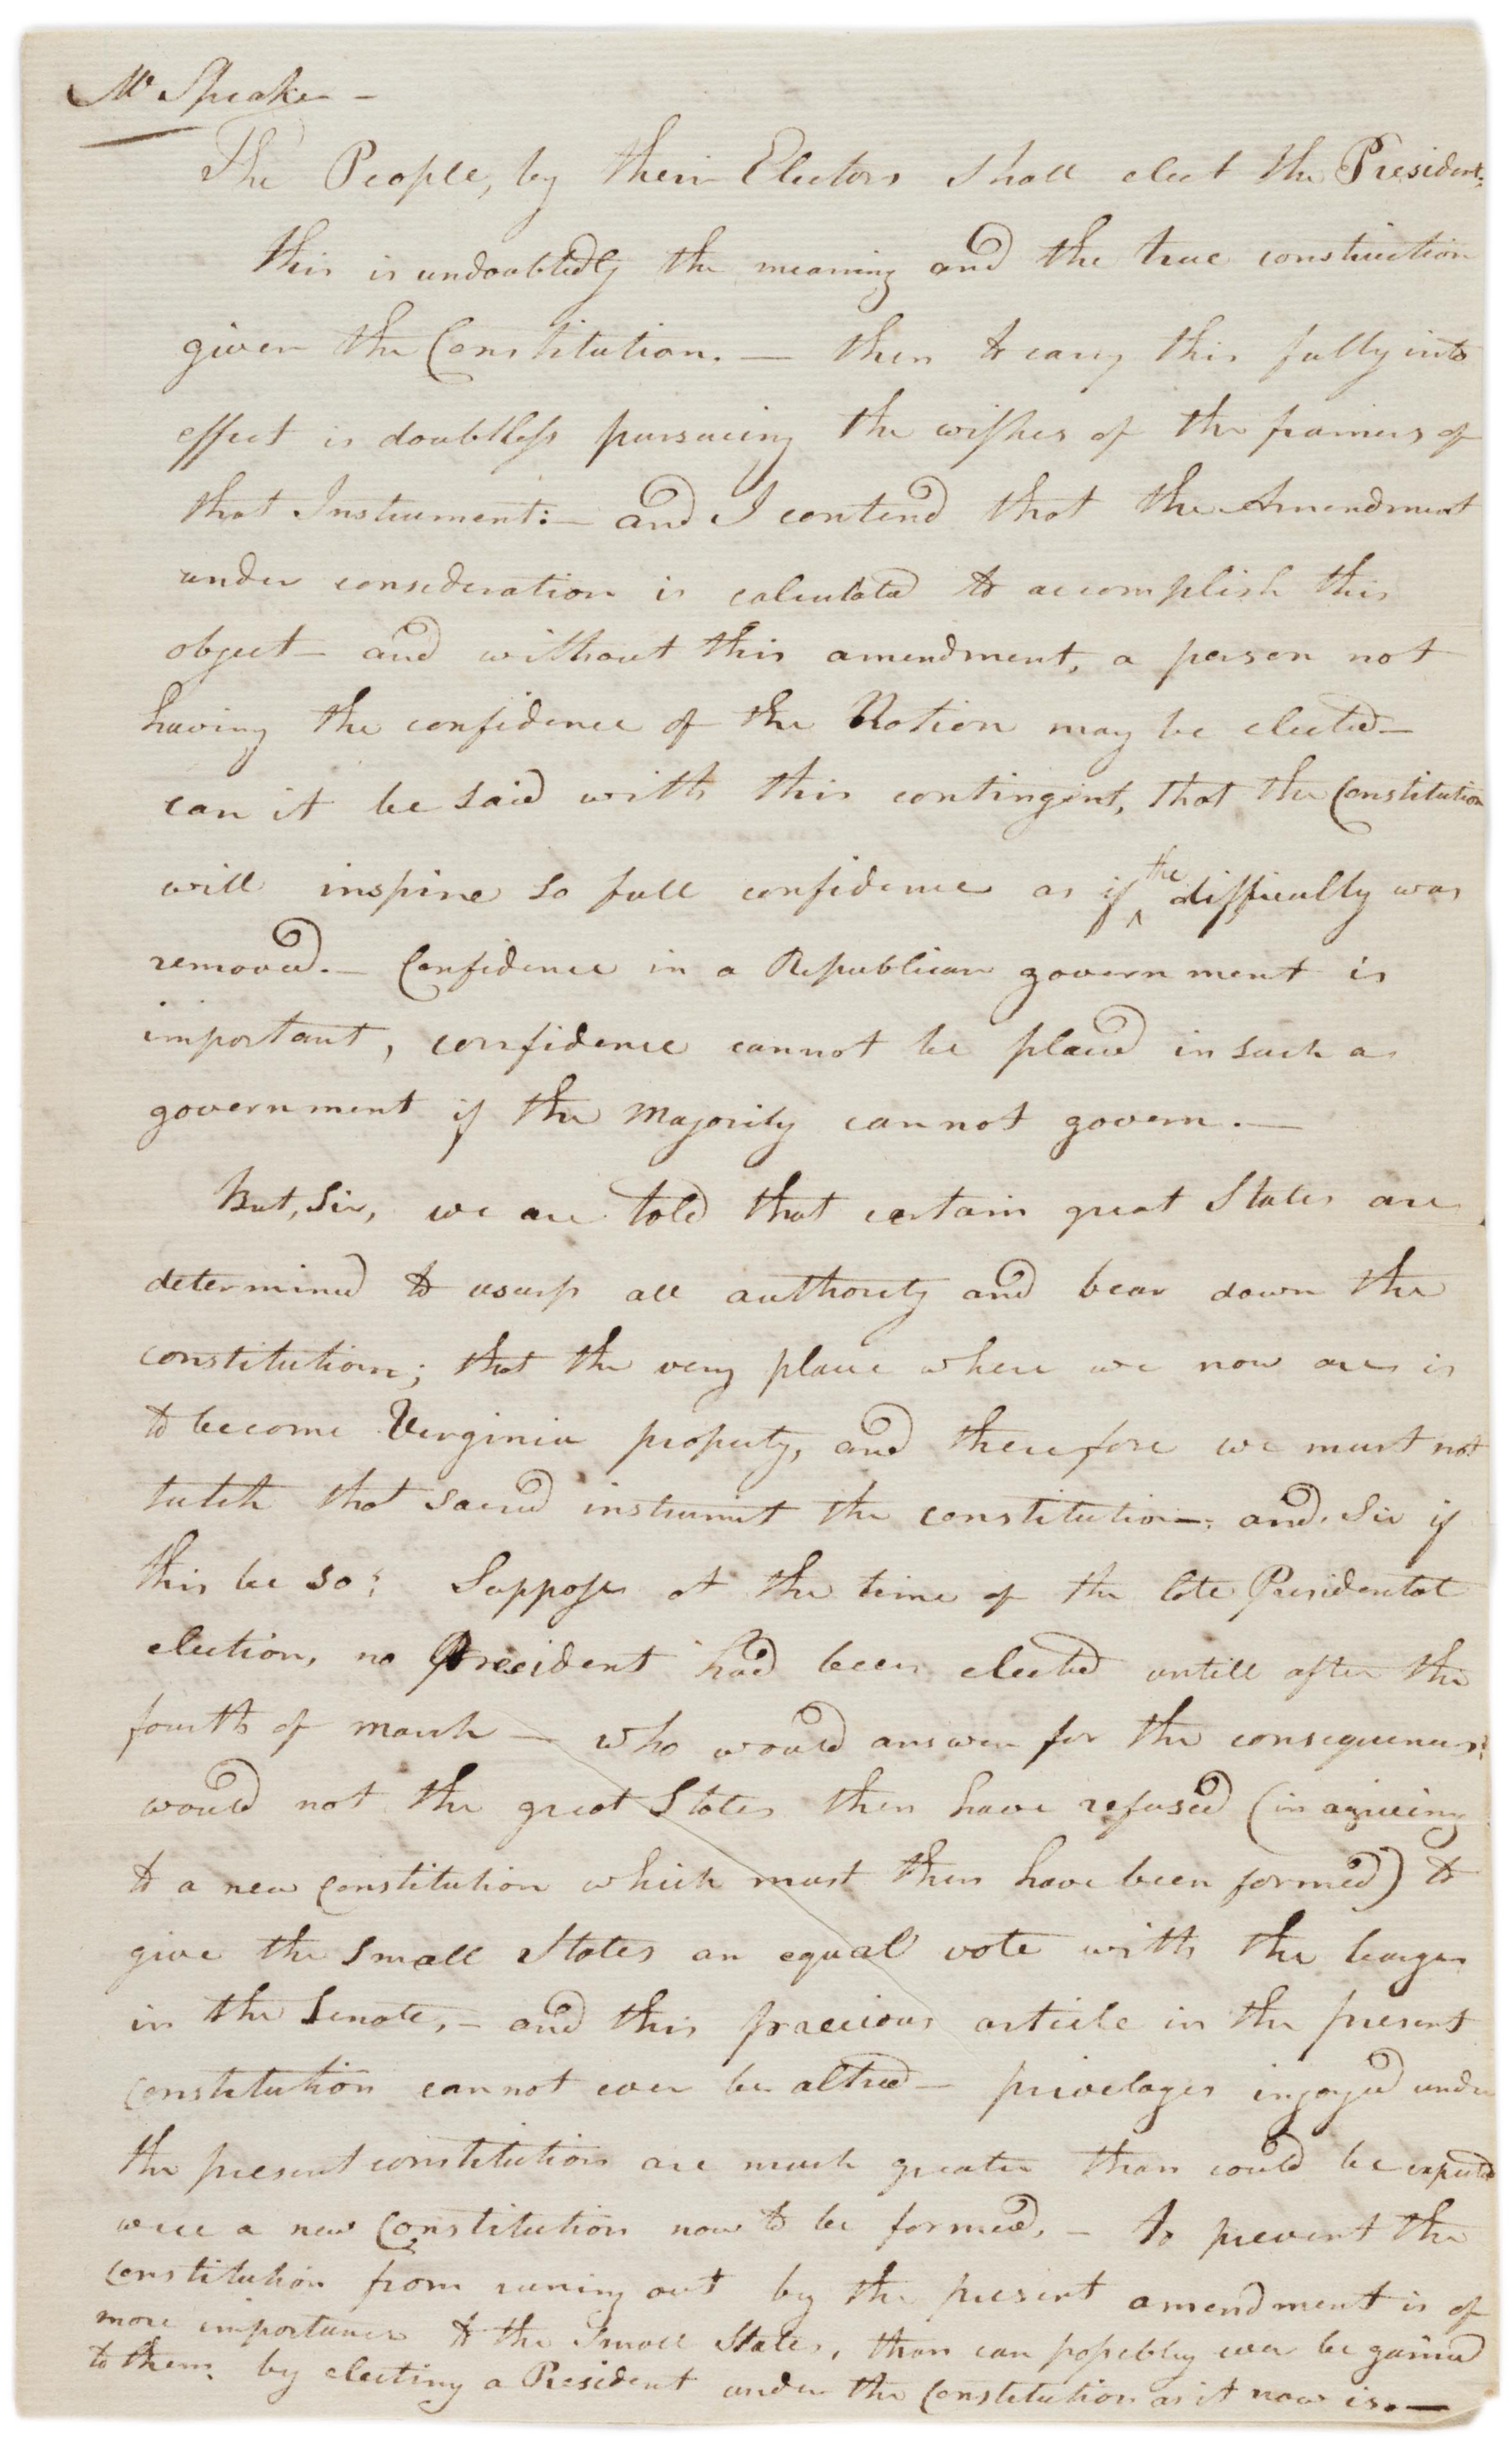 Mr Speaker —
The People, by their Electors shall elect the President:
this is undoubtedly the meaning and the true construction
given the Constitution. — then to carry this fully into
effect is doubtless pursueing the wishes of the framers of
that Instrument: — and I contend that the Amendment
under consideration is calculated to accomplish this
object — and without this amendment, a person not
having the confidence of the Nation may be elected —
can it be said with this contingent, that the Constitution
will inspire so full confidence as if the difficulty was
removed. — Confidence in a Republican government is
important, confidence cannot be placed in such a
government if the Majority cannot govern. —
But, Sir, we are told that certain great States are
determined to usurp all authority and bear down the
constitution; that the very place where we now are is
to become Verginia property, and therefore we must not
tutch that sacred instrument the constitution —: and, Sir if
this be so? Suppose at the time of the late Presidental
election, no President had been elected untill after the
fourth of march — who would answer for the consequences?
would not the great States then have refused (in agreeing
to a new constitution which must then have been formed) to
give the small States an equal vote with the larger
in the Senate, — and this precious article in the present
constitution cannot ever be altred — privelages injoyed under
the present constitution are much greater than could be expected
were a new Constitution now to be formed, — to prevent the
constitution from runing out by the present amendment is of
more importance to the Small States, than can possebley ever be gained
to them: by electing a President under the Constitution as it now is. —